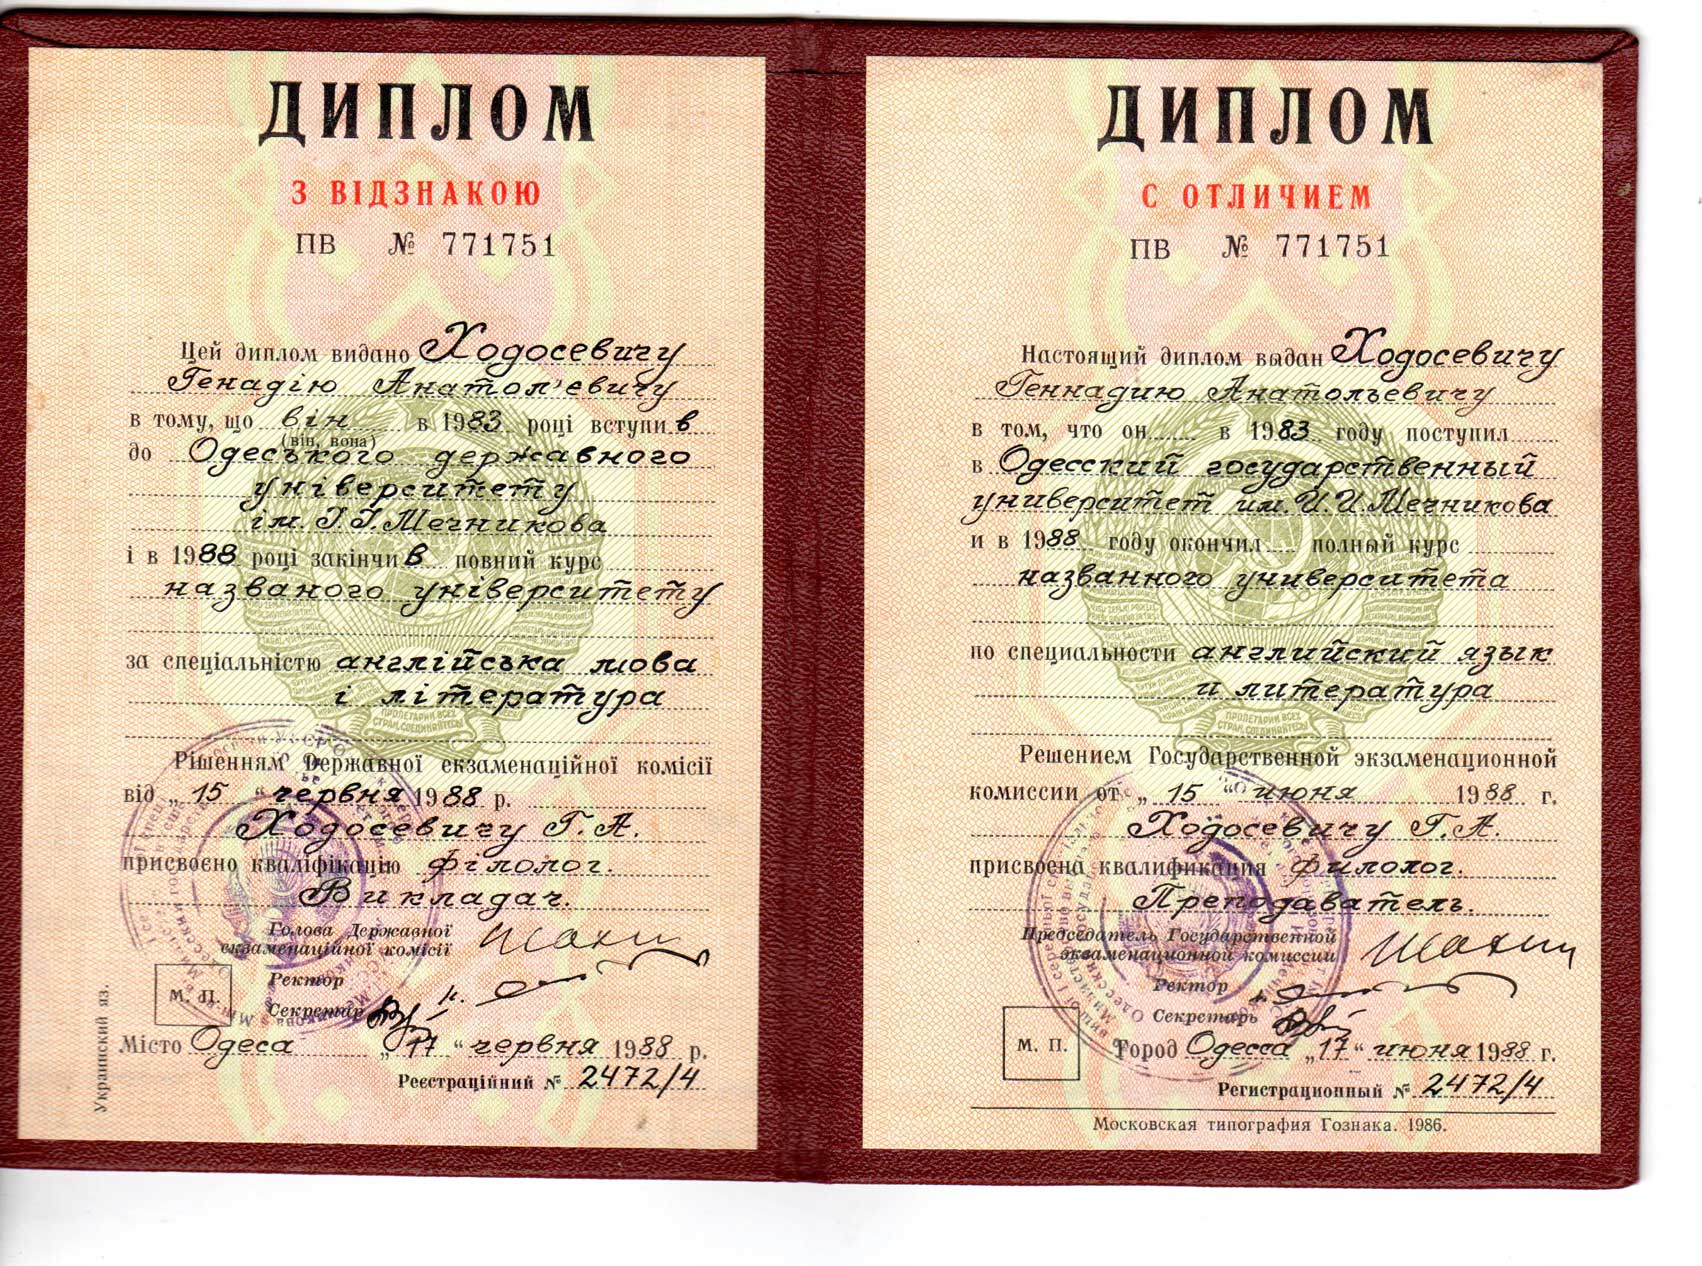 ДИПЛОМ
З ВІДЗНАКОЮ
ПВ № 771751
Цей диплом видано Ходосевичу
Генадію Анатол'євичу
в тому, що він в 1983 році вступив
(він, вона)
до Одеського державного
університету
ім. І.І. Мечникова
і в 1988 році закінчив повний курс
названого університету
за спеціальністю англійська мова
і література
Рішенням Державної екзаменаційної комісії
від „15“ червня 1988 р.
Ходосевичу Г. А.
присвоєно кваліфікацію філолог.
Викладач.
Голова Державної
екзаменаційної комісії
Ректор
М. П.
Секретар
Місто Одеса „17“ червня 1988 р.
Реєстраційний № 2472/4
Украинский яз.
ДИПЛОМ
С ОТЛИЧИЕМ
ПВ № 771751
Настоящий диплом выдан Ходосевичу
Геннадию Анатольевичу
в том, что он в 1983 году поступил
в Одесский государственный
университет им. И. И. Мечникова
и в 1988 году окончил полный курс
названного университета
по специальности английский язык
и литература
ПРОЛЕТАРИИ ВСЕХ
СТРАН, СОЕДИНЯЙТЕСЬ!
Решением Государственной экзаменационной
комиссии от „15“ июня 1988 г.
Ходосевичу Г. А.
присвоена квалификация филолог.
Преподаватель.
Председатель Государственной
экзаменационной комиссии
Ректор
Секретарь
М. П.
Город Одесса „17“ июня 1988 г.
Регистрационный № 2472/4
Московская типография Гознака. 1986.